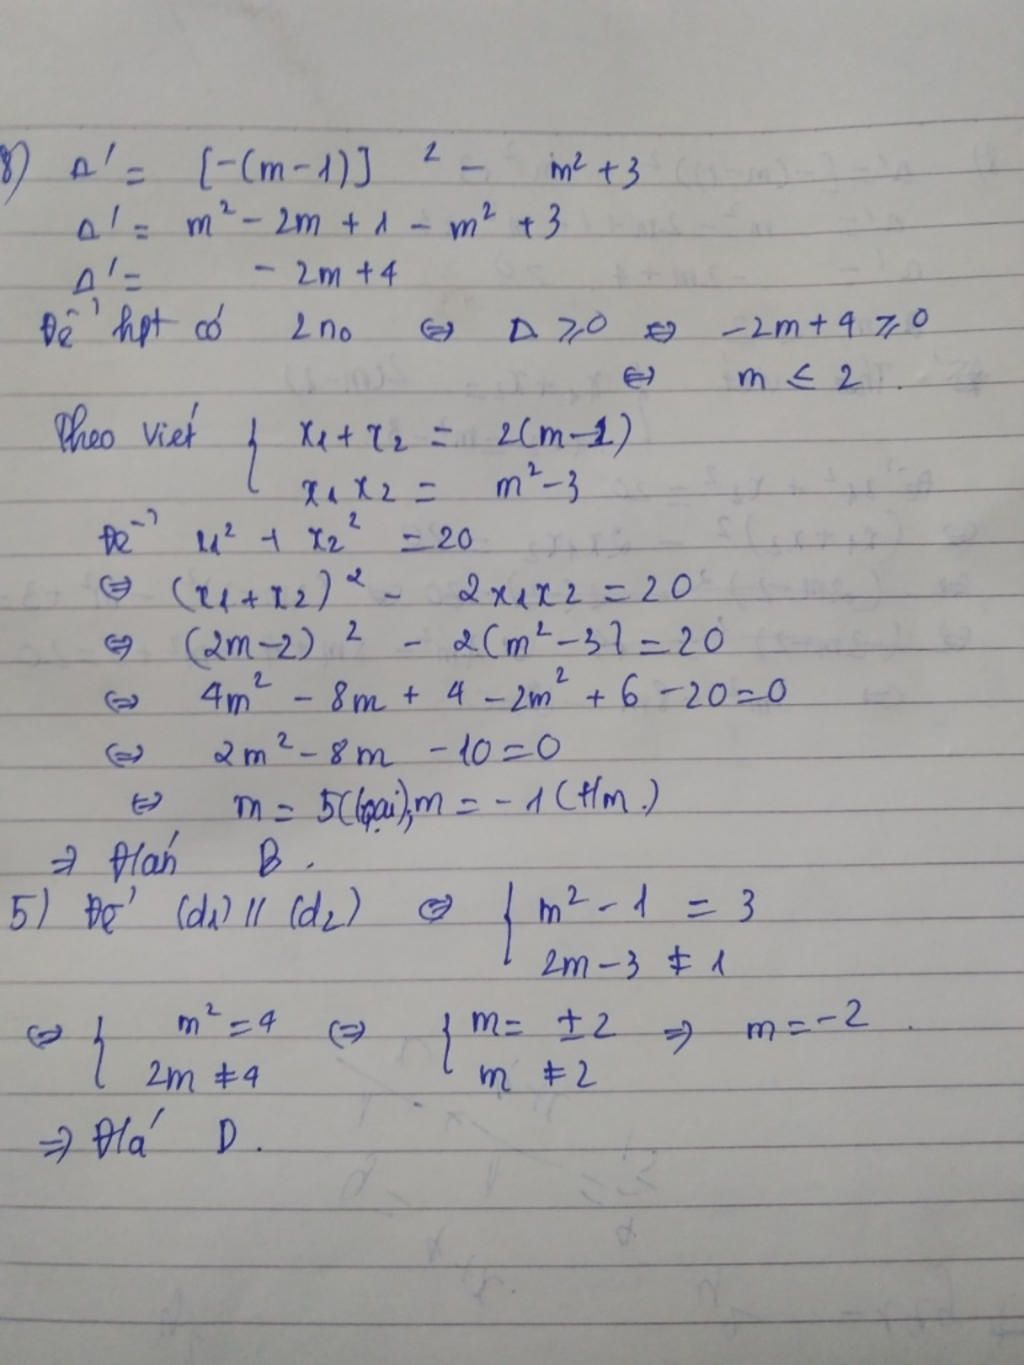 8) Δ' = [-(m-1)]² - m² + 3
Δ' = m² - 2m + 1 - m² + 3
Δ' = - 2m + 4
Để hpt có 2 no ⇔ Δ ⩾ 0 ⇔ -2m + 4 ⩾ 0
⇔ m ≤ 2.
Theo Viét { x1 + x2 = 2(m-1)
x1 x2 = m² - 3
Để x1² + x2² = 20
⇔ (x1 + x2)² - 2x1x2 = 20
⇔ (2m-2)² - 2(m² - 3) = 20
⇔ 4m² - 8m + 4 - 2m² + 6 - 20 = 0
⇔ 2m² - 8m - 10 = 0
⇔ m = 5 (loại); m = -1 (t/m.)
⇒ Đ/án B.
5) Để (d1) // (d2) ⇔ { m² - 1 = 3
2m - 3 ≠ 1
⇔ { m² = 4 ⇔ { m = ±2 ⇒ m = -2.
2m ≠ 4 m ≠ 2
⇒ Đ/á D.